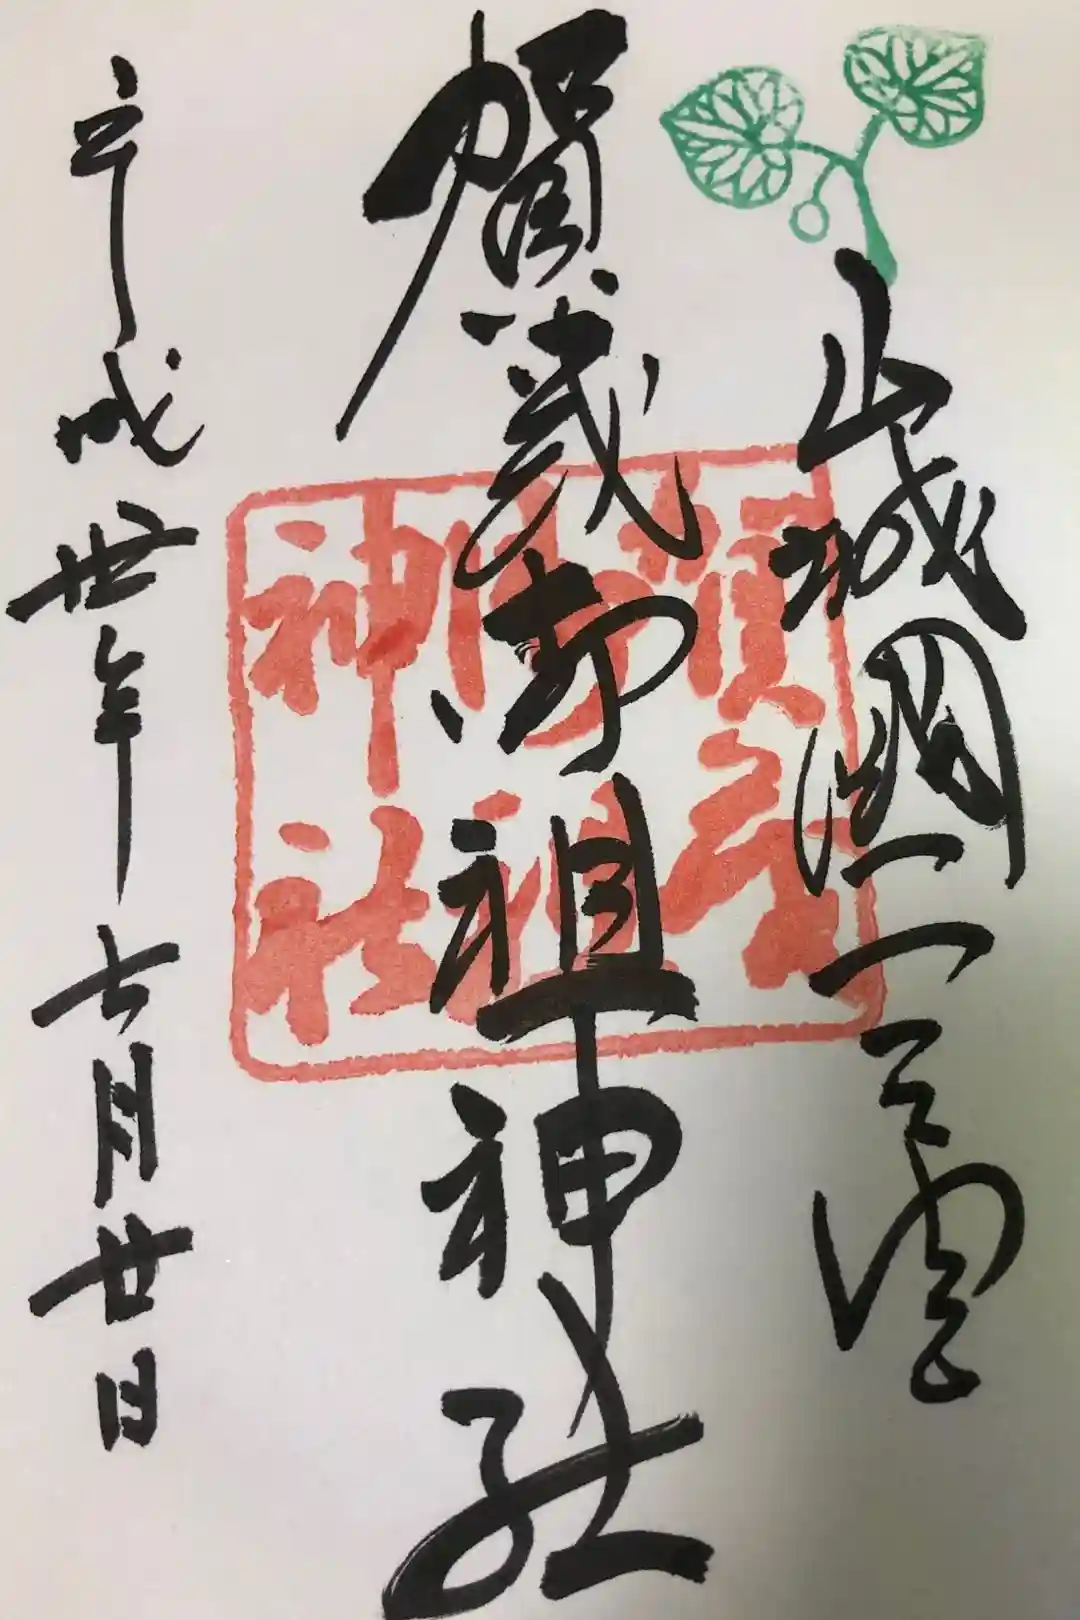 山城國一宮
賀茂御祖神社
平成卅年七月廿日
賀茂
御祖
神社